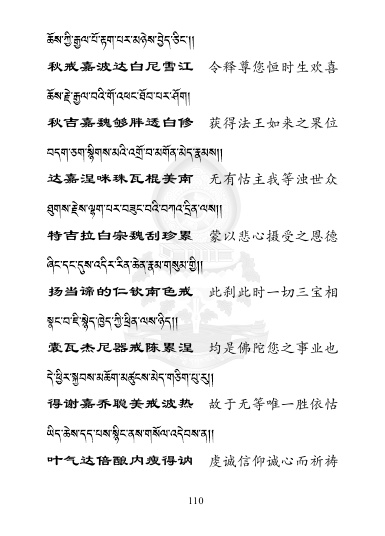 ཆོས་ཀྱི་རྒྱལ་པོ་རྟག་པར་མཉེས་བྱེད་ཅིང་།།
秋戒嘉波达白尼雪江 令释尊您恒时生欢喜
ཆོས་རྗེ་རྒྱལ་བའི་གོ་འཕང་ཐོབ་པར་ཤོག།
秋吉嘉魏够胖透白修 获得法王如来之果位
བདག་ཅག་སྙིགས་མའི་འགྲོ་བ་མགོན་མེད་རྣམས།།
达嘉涅咪珠瓦棍美南 无有怙主我等浊世众
ཐུགས་རྗེས་ལྷག་པར་བཟུང་བའི་བཀའ་དྲིན་ལས།།
特吉拉白宗魏刮珍累 蒙以悲心摄受之恩德
ཞིང་དང་དུས་འདིར་རིན་ཆེན་རྣམ་གསུམ་གྱི།།
扬当谛的仁钦南色戒 此刹此时一切三宝相
སྣང་བ་ཇི་སྙེད་ཁྱེད་ཀྱི་ཕྲིན་ལས་ཉིད།།
囊瓦杰尼器戒陈累涅 均是佛陀您之事业也
དེ་ཕྱིར་སྐྱབས་མཆོག་མཚུངས་མེད་གཅིག་པུ་རུ།།
得谢嘉乔聪美戒波热 故于无等唯一胜依怙
ཡིད་ཆེས་དད་པས་སྙིང་ནས་གསོལ་འདེབས་ན།།
叶气达倍酿内瘦得讷 虔诚信仰诚心而祈祷
110